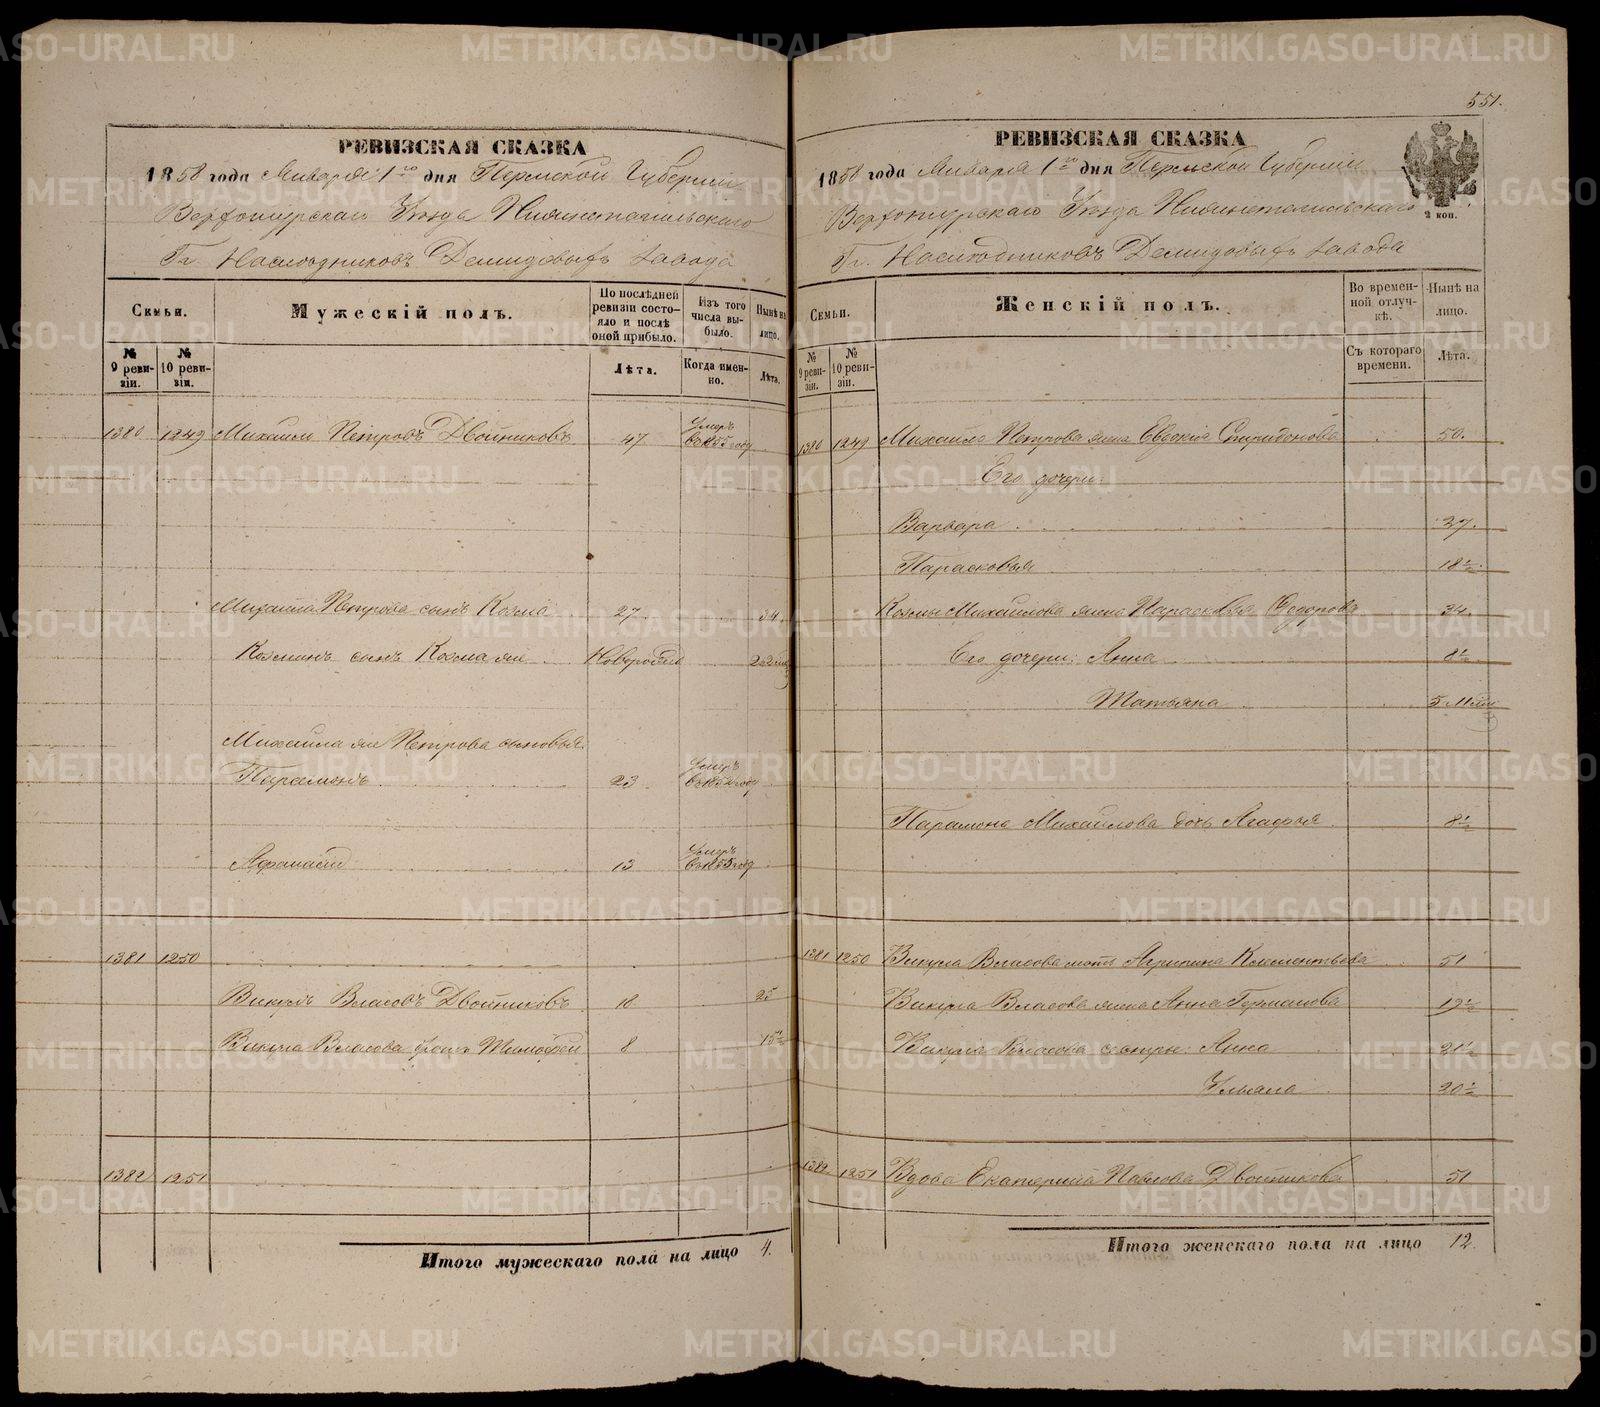 551.
РЕВИЗСКАЯ СКАЗКА
1858 года Января 1го дня Пермской Губернии
Верхотурскаго Уезда Нижнетагильскаго
Гг. Наследниковъ Демидовыхъ завода
Семьи.
№ 9 ревизіи.
№ 10 ревизіи.
Мужескій полъ.
По последней ревизіи состояло и после оной прибыло.
Лѣта.
Изъ того числа выбыло.
Когда именно.
Ныне на лицо.
Лѣта.
1380 1249 Михаилъ Петровъ Двойниковъ 47 Умеръ въ 1855 году
Михаила Петрова сынъ Козма 27 34.
Козминъ сынъ Козма же Новорожд
Михаила же Петрова сыновья:
Парамонъ 23 Умеръ
Афанасій 13 Умеръ въ 1855 году
1381 1250
Викулъ Власовъ Двойниковъ 18 25
Викула Власова братъ Тимофей 8 15½
1382 1251
Итого мужескаго пола на лицо 4.
РЕВИЗСКАЯ СКАЗКА
1858 года Января 1го дня Пермской Губерніи
Верхотурскаго Уезда Нижнетагильскаго
Гг. Наследниковъ Демидовыхъ завода
2 коп.
Семьи.
№ 9 ревизіи.
№ 10 ревизіи.
Женскій полъ.
Во временной отлучкѣ.
Съ котораго времени.
Нынѣ на лицо.
Лѣта.
1380 1249 Михайла Петрова жена Евдокія Спиридонова 50.
Его дочери:
Варвара 27.
Парасковья 18½
Козмы Михайлова жена Парасковья Федорова 34.
Его дочери: Анна 8½
Татьяна 5
Парамона Михайлова дочь Агафья 8½
1381 1250 Викула Власова мать Агрипина Климентьева 51
Викула Власова жена Анна Германова 19½
Викула Власова сестры: Анна 21½
Ульяна 20½
1382 1251 Вдова Екатерина Павлова Двойникова 51
Итого женскаго пола на лицо 12.
METRIKI.GASO-URAL.RU